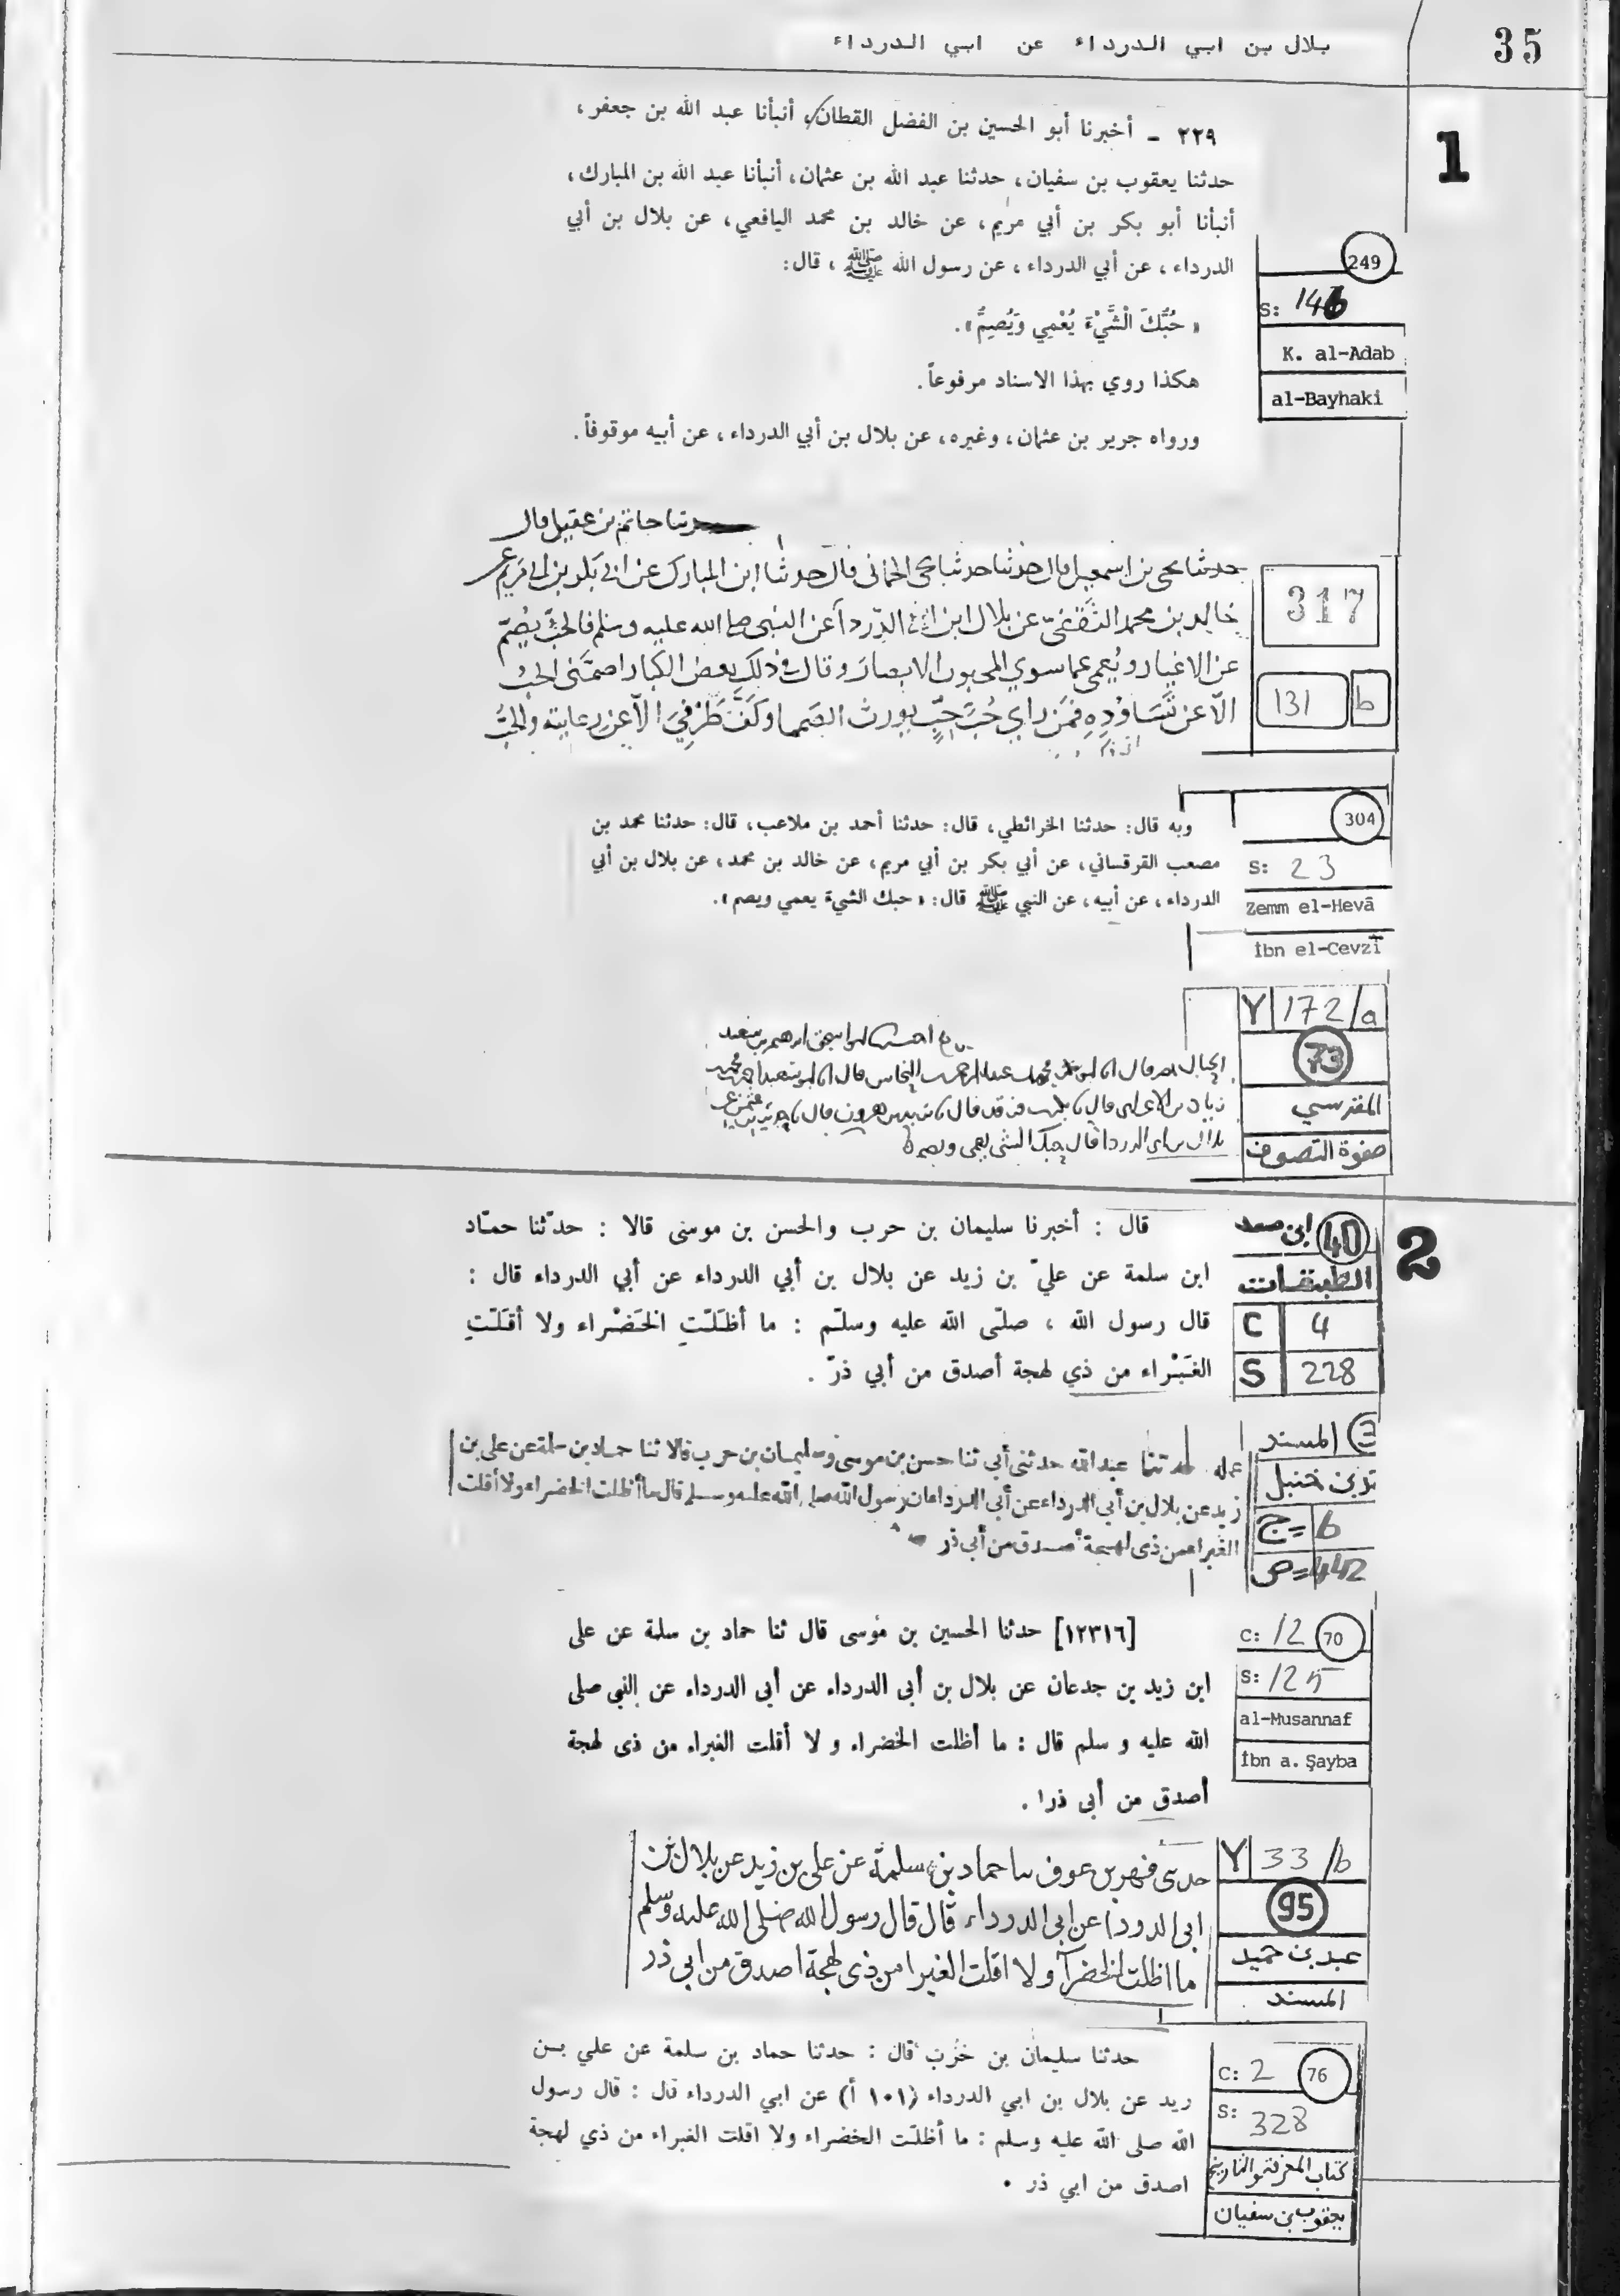 35
بلال بن ابي الدرداء عن ابي الدرداء
1
٢٢٩ - أخبرنا أبو الحسين بن الفضل القطان، أنبأنا عبد الله بن جعفر،
حدثنا يعقوب بن سفيان، حدثنا عبد الله بن عثمان، أنبأنا عبد الله بن المبارك،
أنبأنا أبو بكر بن أبي مريم، عن خالد بن محمد اليافعي، عن بلال بن أبي
الدرداء، عن أبي الدرداء، عن رسول الله ﷺ، قال:
« حُبُّكَ الْشَّيْءَ يُعْمِي وَيُصِمُّ».
هكذا روي بهذا الاسناد مرفوعاً.
ورواه جرير بن عثمان، وغيره، عن بلال بن أبي الدرداء، عن أبيه موقوفاً.
249
S: 146
K. al-Adab
al-Bayhaki
حدثنا حاتم بن عقيل قال
حدثنا يحيى بن اسمعيل قال حدثنا حدثنا يحيى الحماني قال حدثنا ابن المبارك عن ابى بكر بن ابى مريم عن
خالد بن محمد الثقفي عن بلال ابن ابى الدرداء عن النبي صلى الله عليه وسلم قال حبك يصم
عن الاغيار ويعمي عما سوي المحبوب الابصار وقال في ذلك بعض الكبار اصمني الحب
الا عن تساوده فمن راي حب حب يورث الصمما وكف طرفي الا عن رعايته والحب
317
131 b
وبه قال: حدثنا الخرائطي، قال: حدثنا أحمد بن ملاعب، قال: حدثنا محمد بن
مصعب القرقساني، عن أبي بكر بن أبي مريم، عن خالد بن محمد، عن بلال بن أبي
الدرداء، عن أبيه، عن النبي ﷺ قال: « حبك الشيء يعمي ويصم ».
304
S: 23
Zemm el-Hevâ
İbn el-Cevzî
ابو اسحق ابرهيم بن سعيد
الحبال قال عبد الرحمن النحاس قال ابو سعيد احمد بن محمد
زياد بن الاعرابي قال قال يزيد بن هرون قال
بلال بن ابى الدرداء قال حبك الشي يعمي ويصم
Y 172/a
73
المقدسي
صفوة التصوف
2
قال : أخبرنا سليمان بن حرب والحسن بن موسى قالا : حدّثنا حمّاد
ابن سلمة عن عليّ بن زيد عن بلال بن أبي الدرداء عن أبي الدرداء قال :
قال رسول الله ، صلّى الله عليه وسلّم : ما أظَلّتِ الخَضْراء ولا أقَلّتِ
الغَبْراء من ذي لهجة أصدق من أبي ذرّ .
40 ابن سعد
الطبقات
C 4
S 228
حدثنا عبد الله حدثني أبي ثنا حسن بن موسى وسليمان بن حرب قالا ثنا حماد بن سلمة عن على بن
زيد عن بلال بن أبي الدرداء عن أبي الدرداء ان رسول الله صلى الله عليه وسلم قال ما أظلت الخضراء ولا أقلت
الغبراء من ذى لهجة أصدق من أبي ذر
المسند
بن حنبل
ج= 6
ص= 442
[١٢٣١٦] حدثنا الحسين بن موسى قال ثنا حماد بن سلمة عن على
ابن زيد بن جدعان عن بلال بن أبى الدرداء عن أبى الدرداء عن النبى صلى
الله عليه و سلم قال : ما أظلت الخضراء و لا أقلت الغبراء من ذى لهجة
أصدق من أبى ذرا .
C: 12 70
S: 125
al-Musannaf
İbn a. Şayba
حدثني فهر بن عوف ثنا حماد بن سلمة عن علي بن زيد عن بلال بن
ابى الدرداء عن ابى الدرداء قال قال رسول الله صلى الله عليه وسلم
ما اظلت الخضرا ولا اقلت الغبرا من ذى لهجة اصدق من ابي ذر
Y 33/b
95
عبد بن حميد
المسند
حدثنا سليمان بن حرب قال : حدثنا حماد بن سلمة عن علي بن
زيد عن بلال بن ابي الدرداء (١٠١ أ) عن ابي الدرداء قال : قال رسول
الله صلى الله عليه وسلم : ما أظلت الخضراء ولا اقلت الغبراء من ذي لهجة
اصدق من ابي ذر .
C: 2 76
S: 328
كتاب المعرفة والتاريخ
يعقوب بن سفيان